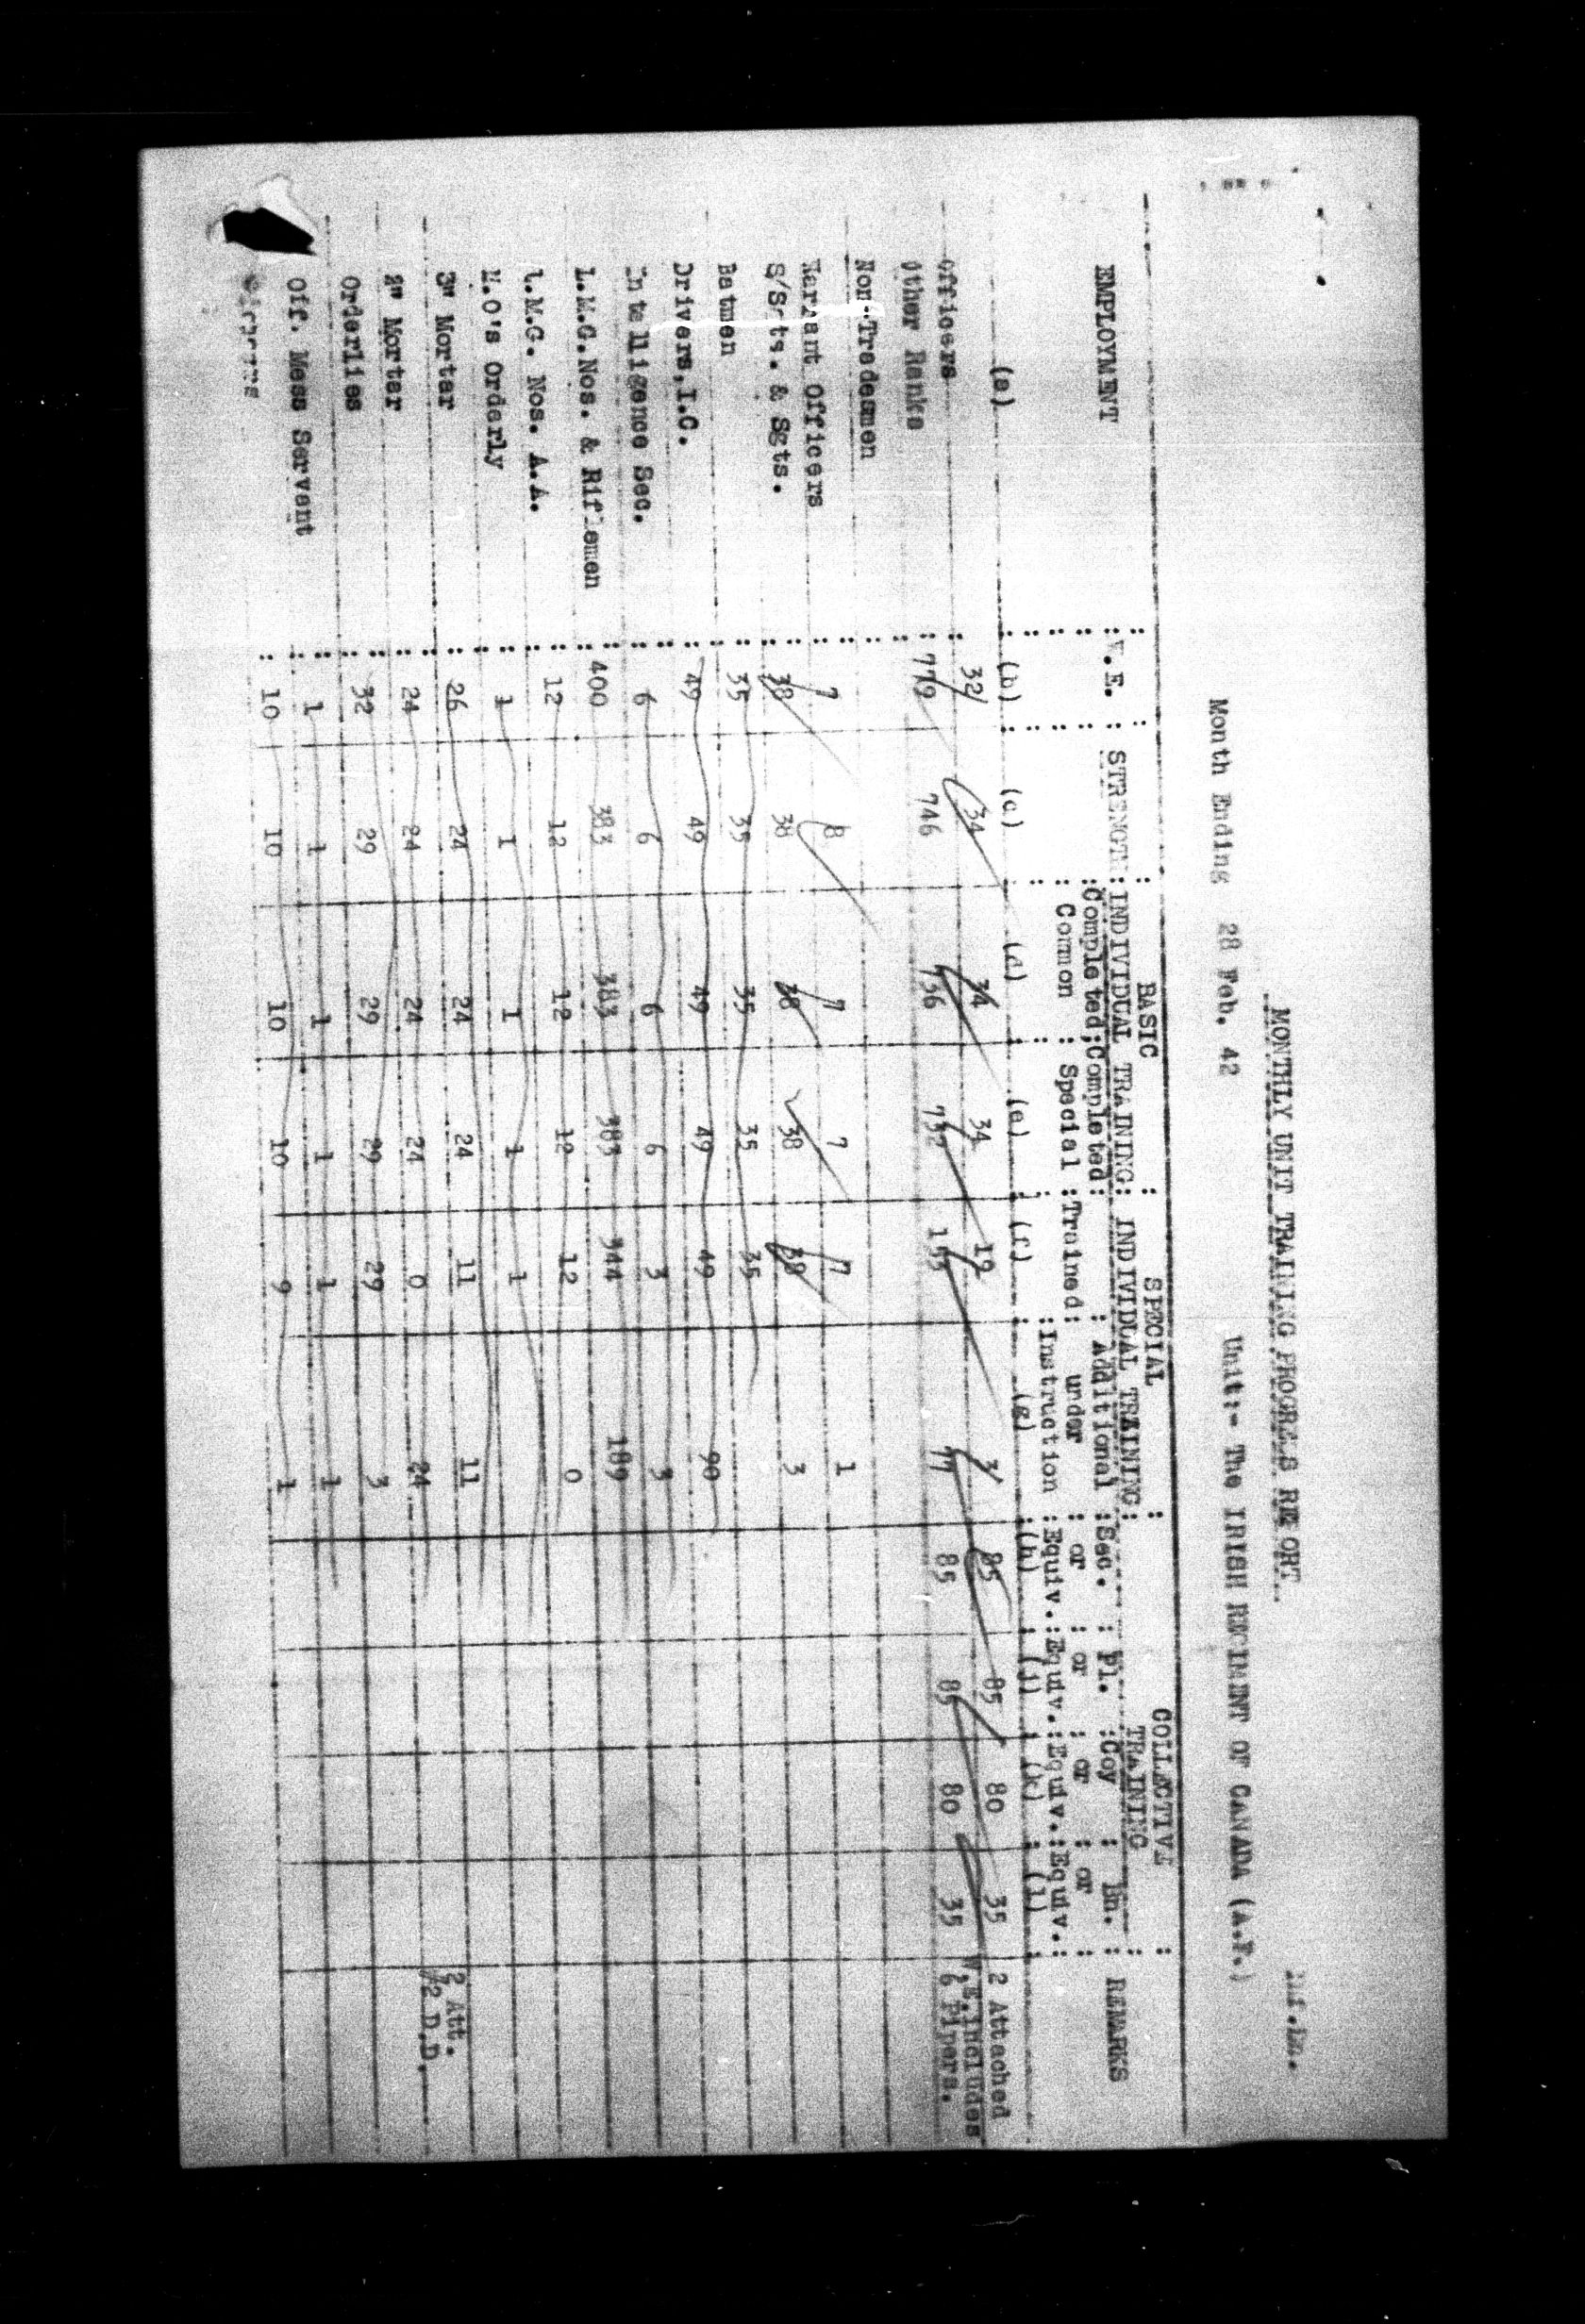 Inf.Bn.
MONTHLY UNIT TRAINING PROGRESS REPORT.
Month Ending 28 Feb. 42 Unit:- The IRISH REGIMENT OF CANADA (A.F.)
BASIC SPECIAL COLLECTIVE
EMPLOYMENT : W.E. : STRENGTH : INDIVIDUAL TRAINING : INDIVIDUAL TRAINING : TRAINING : REMARKS
: Completed : Completed : : Additional : Sec. : Pl. : Coy : Bn. :
: Common : Special : Trained : under : or : or : or : or :
: Instruction : Equiv. : Equiv. : Equiv. : Equiv. :
(a) (b) (c) (d) (e) (f) (g) (h) (j) (k) (l)
Officers 32 34 34 34 19 3 85 85 80 35 2 Attached
Other Ranks 779 746 736 732 155 77 85 85 80 35 W.E. includes
6 Pipers.
Non-Tradesmen
Warrant Officers 7 8 7 7 7 1
S/Sgts. & Sgts. 38 38 38 38 38 3
Batmen 35 35 35 35 35
Drivers,I.C. 49 49 49 49 49 90
Intelligence Sec. 6 6 6 6 3 3
L.M.G.Nos. & Riflemen 400 383 383 383 344 189
L.M.G. Nos. A.A. 12 12 12 12 12 0
M.O's Orderly 1 1 1 1 1
3" Mortar 26 24 24 24 11 11 2 Att.
2" Mortar 24 24 24 24 0 24 2 D.D.
Orderlies 32 29 29 29 29 3
Off. Mess Servant 1 1 1 1 1 1
10 10 10 10 9 1